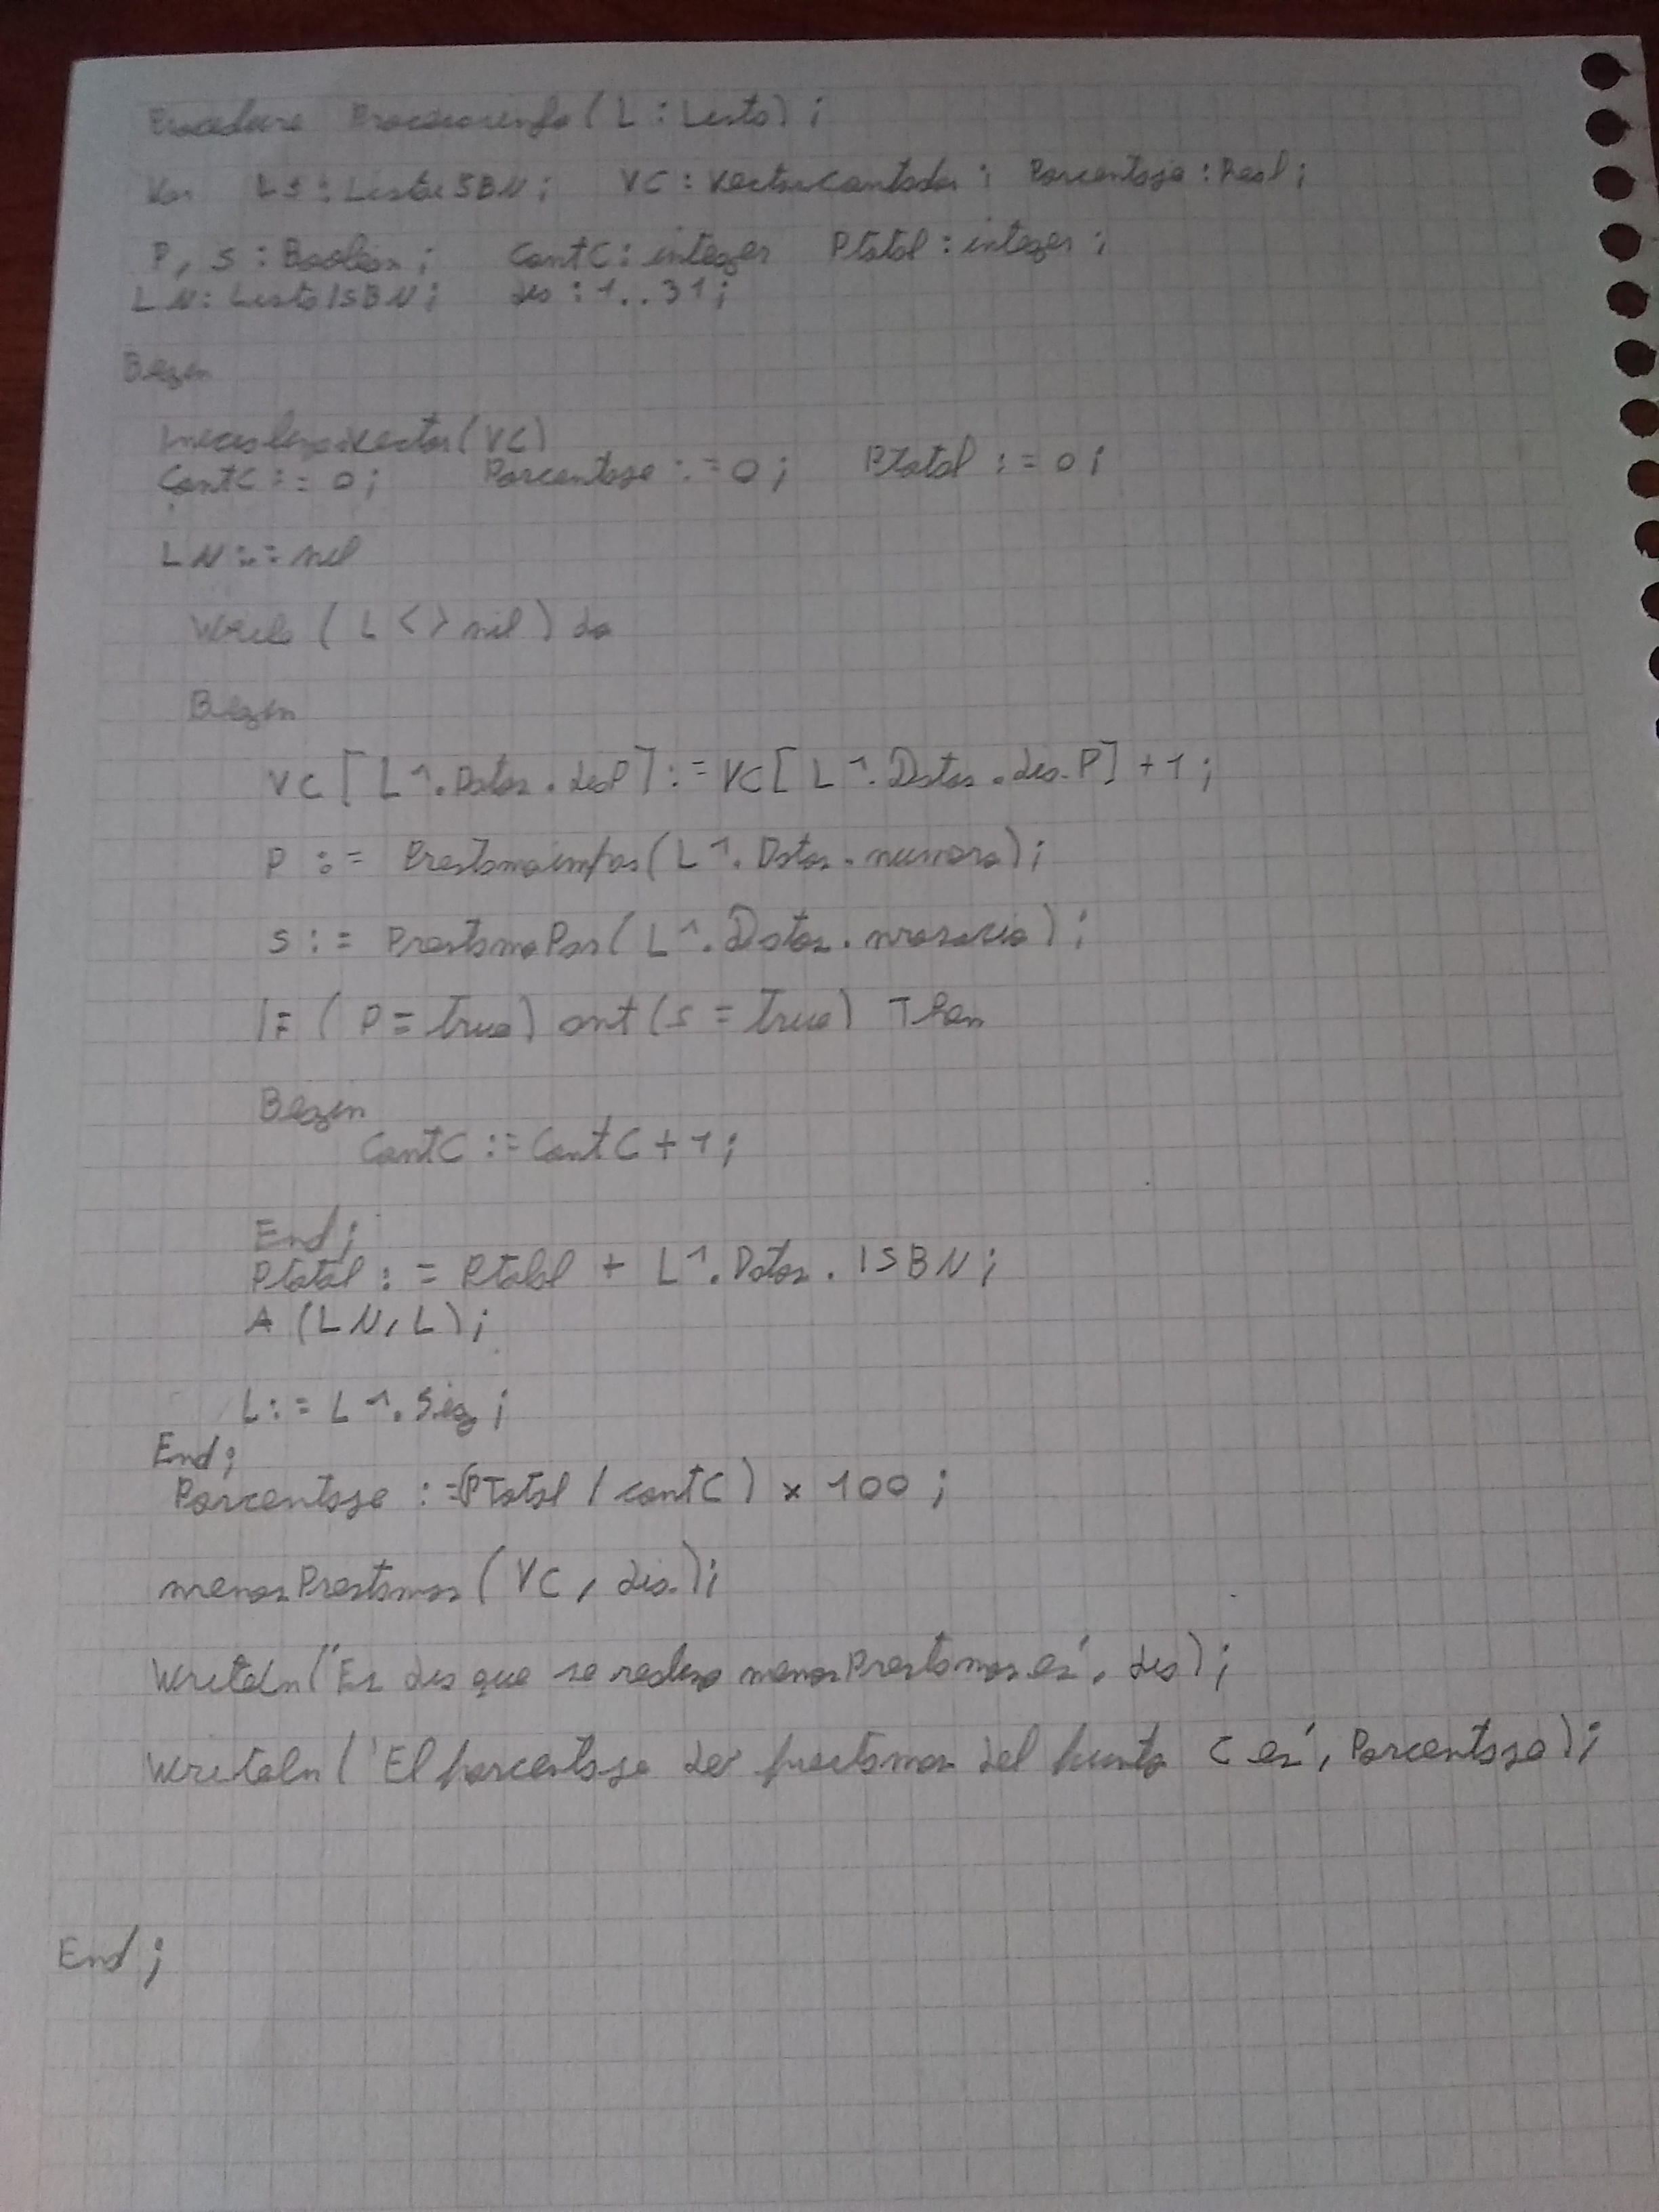 Procedure Procesarinfo (L : Lista) ;
Var LS : ListaISBN ; VC : Vectorcontador ; Porcentaje : Real ;
P, S : Boolean ; CantC : integer Ptotal : integer ;
LN : ListaISBN ; dia : 1..31 ;
Begin
inicializarvector (VC)
CantC := 0 ; Porcentaje := 0 ; Ptotal := 0 ;
LN := nil
While ( L <> nil ) do
Begin
VC [ L^.Datos.diaP ] := VC [ L^.Datos.dia.P ] + 1 ;
P := Prestamoimpar ( L^.Datos.numero ) ;
S := PrestamoPar ( L^.Datos.nrosocio ) ;
IF ( P = true ) ant ( S = true ) Then
Begin
CantC := CantC + 1 ;
End ;
Ptotal := Ptotal + L^.Datos.ISBN ;
A (LN, L) ;
L := L^.Sig ;
End ;
Porcentaje := (PTotal / cantC) x 100 ;
menosPrestamos ( VC , dia ) ;
Writeln ('El dia que se realizo menos Prestamos es', dia ) ;
Writeln ( 'El porcentaje de prestamos del punto C es', Porcentaje ) ;
End ;